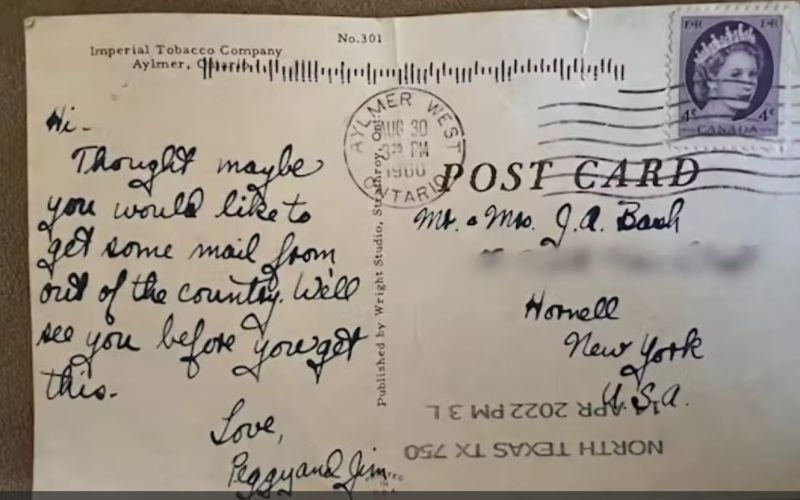 No.301
Imperial Tobacco Company
Aylmer, Ontario
E R
E R
4¢ 4¢
CANADA
AYLMER WEST
AUG 30
PM
ONTARIO
POST CARD
Hi-
Thought maybe
you would like to
get some mail from
out of the country. We'll
see you before you get
this.
Love,
Peggy and Jim
Published by Wright Studio, Strathroy, Ont.
Mr. & Mrs. J.A.
Hornell
New York
U.S.A.
NORTH TEXAS TX 750
APR 2022 PM 3 L